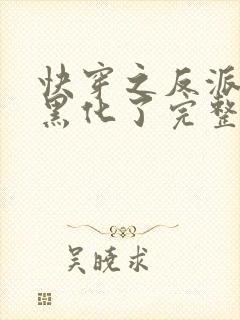 快穿之反派
黑化了完整
吴晓求